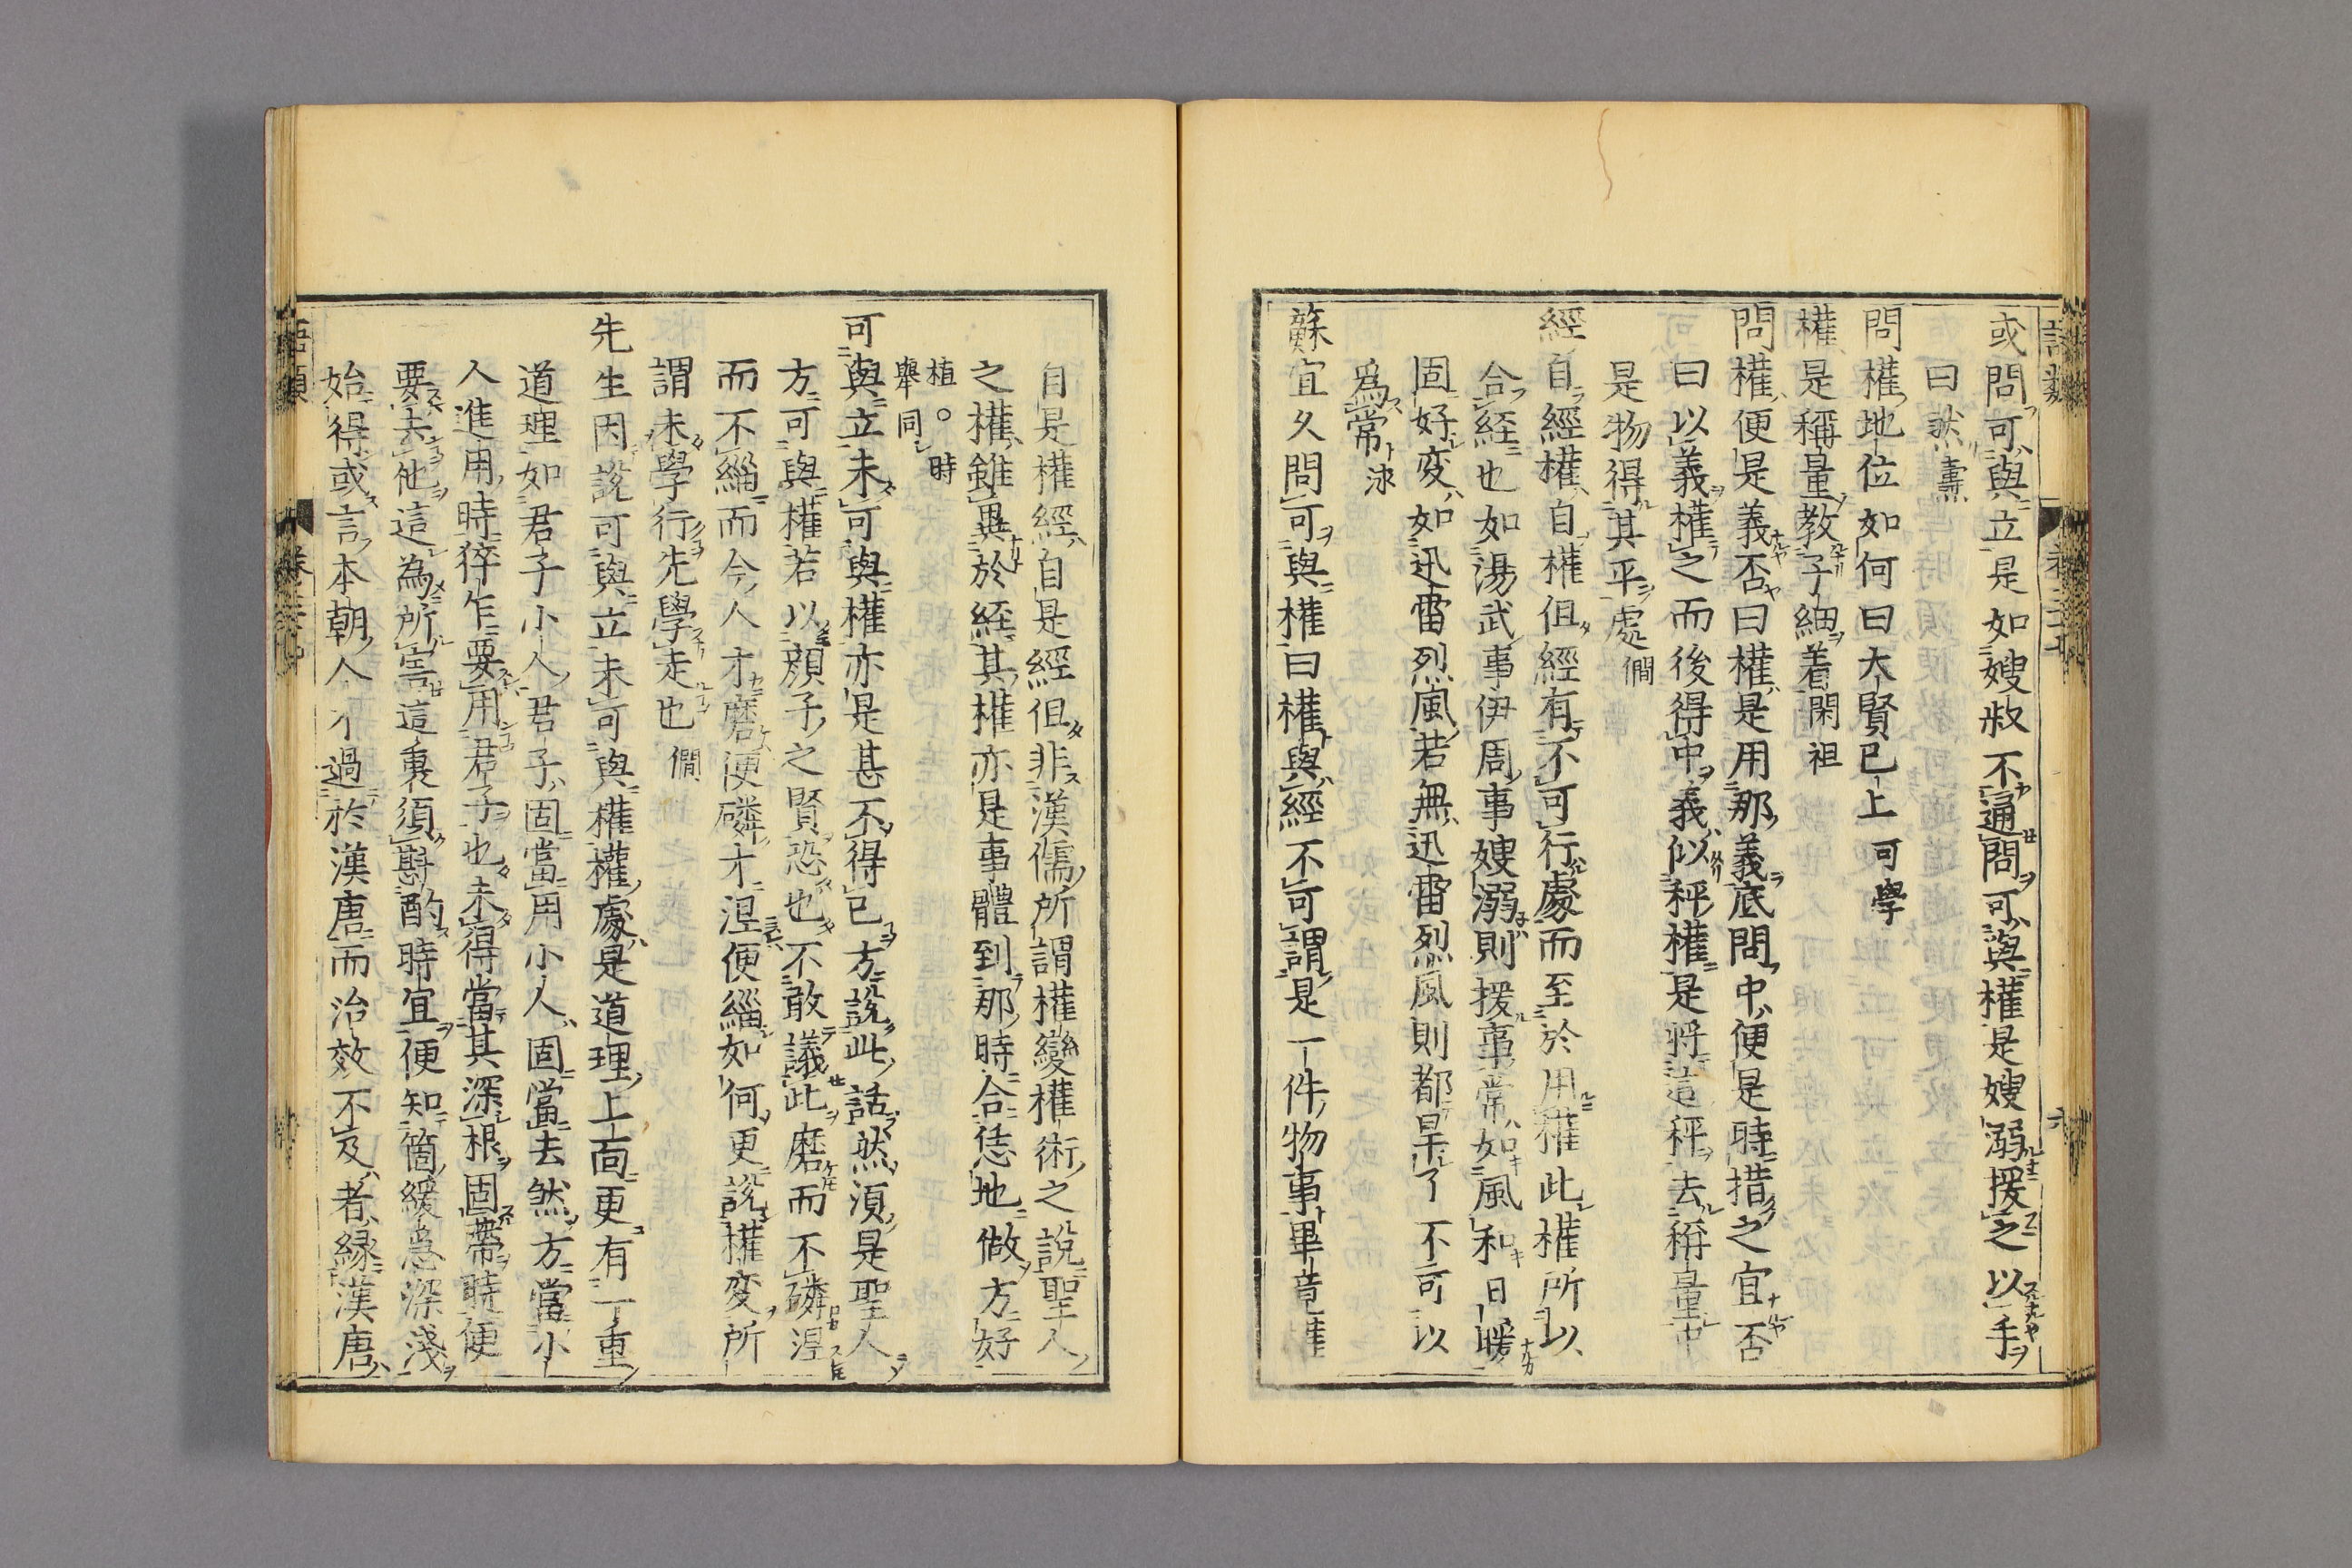 或問可與立是如嫂叔不通問可與權是嫂溺援之以手
曰然燾
問權地位如何曰大賢已上可學
權是稱量教子細着閎祖
問權便是義否曰權是用那義底問中便是時措之宜否
曰以義權之而後得中義似秤權是將這秤去稱量中
是物得其平處僩
經自經權自權但經有不可行處而至於用權此權所以
合経也如湯武事伊周事嫂溺則援事常如風和日暖
固好変如迅雷烈風若無迅雷烈風則都旱了不可以
爲常泳
蘇宜久問可與權曰權與經不可謂是一件物事畢竟權
自是權經自是經但非漢儒所謂權變權術之說聖人
之權雖異於経其權亦是事體到那時合恁地做方好
植○時
舉同
可與立未可與權亦是甚不得已方說此話然湏是聖人
方可與權若以顔子之賢恐也不敢議此磨而不磷涅
而不緇而今人才磨便磷才涅便緇如何更說權変所
謂未學行先學走也僩
先生因說可與立未可與權權處是道理上面更有一重
道理如君子小人君子固當用小人固當去然方當小
人進用時猝乍要用君子也未得當其深根固蔕時便
要去他這為所害這裏須斟酌時宜便知箇緩急深淺
始得或言本朝人才過於漢唐而治效不及者緣漢唐
語類